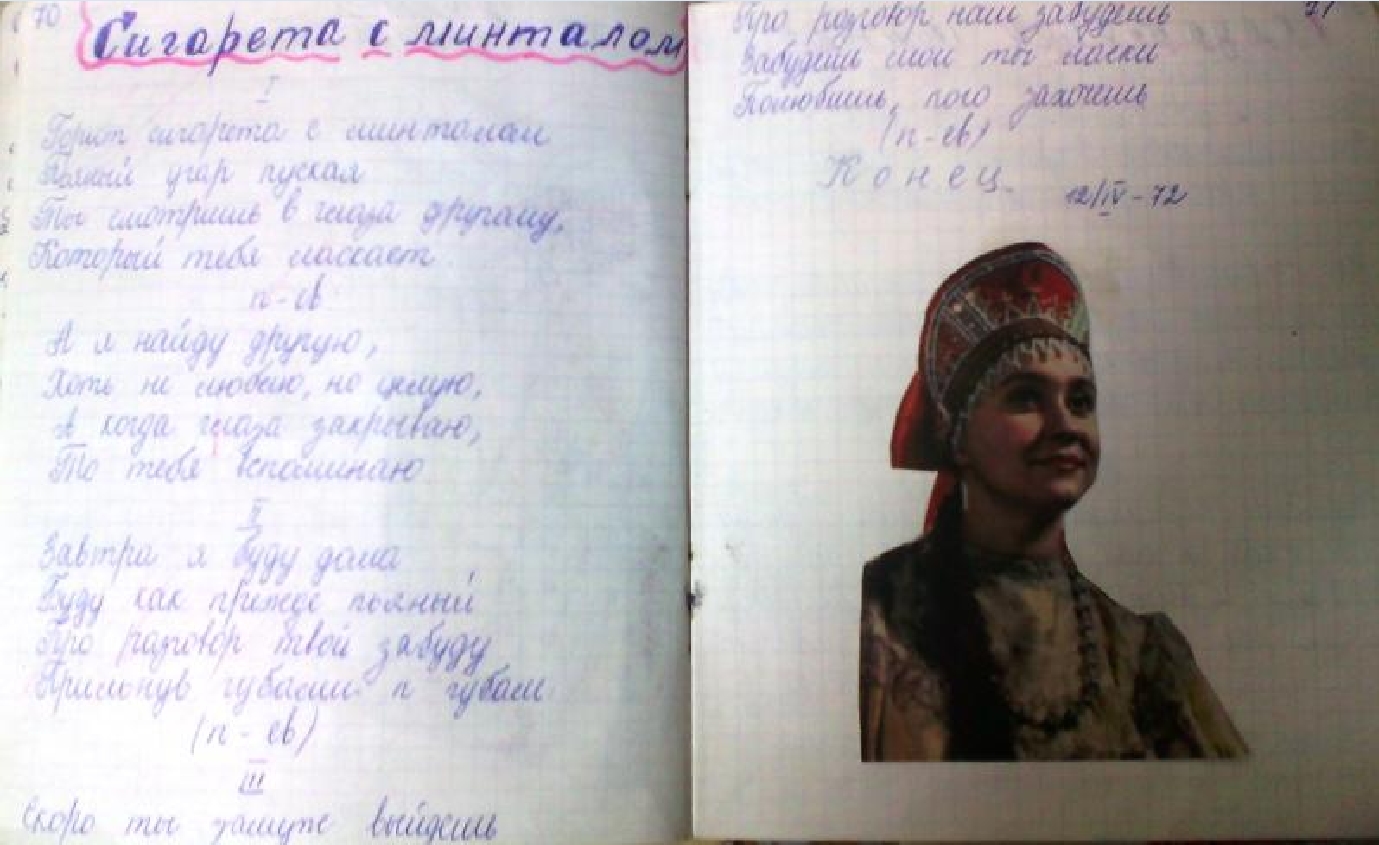 70
Сигарета с минталом
I
Горит сигарета с минталам
Пьяный угар пуская
Ты смотришь в глаза другому,
Который тебя ласкает
п-ев
А я найду другую,
Хоть не люблю, но целую,
А когда глаза закрываю,
То тебя вспоминаю
II
Завтра я буду дома
Буду как прежде пьяный
Про разговор твой забуду
Прильнув губами к губам
(п-ев)
III
Скоро ты замуж выйдешь
71
Про разговор наш забудешь
Забудешь мои ты ласки
Полюбишь, кого захочешь
(п-ев)
Конец.
12/IV-72